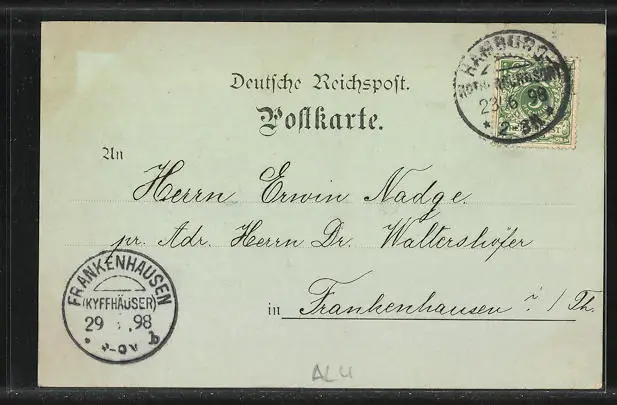 Deutsche Reichspost.
Postkarte.
HAMBURG
23. 6. 98
* 2-3N *
An
Herrn Erwin Nadge.
pr. Adr. Herrn Dr. Waltershöfer
in Frankenhausen i/Th.
FRANKENHAUSEN
(KYFFHÄUSER)
29 98
b
ALU